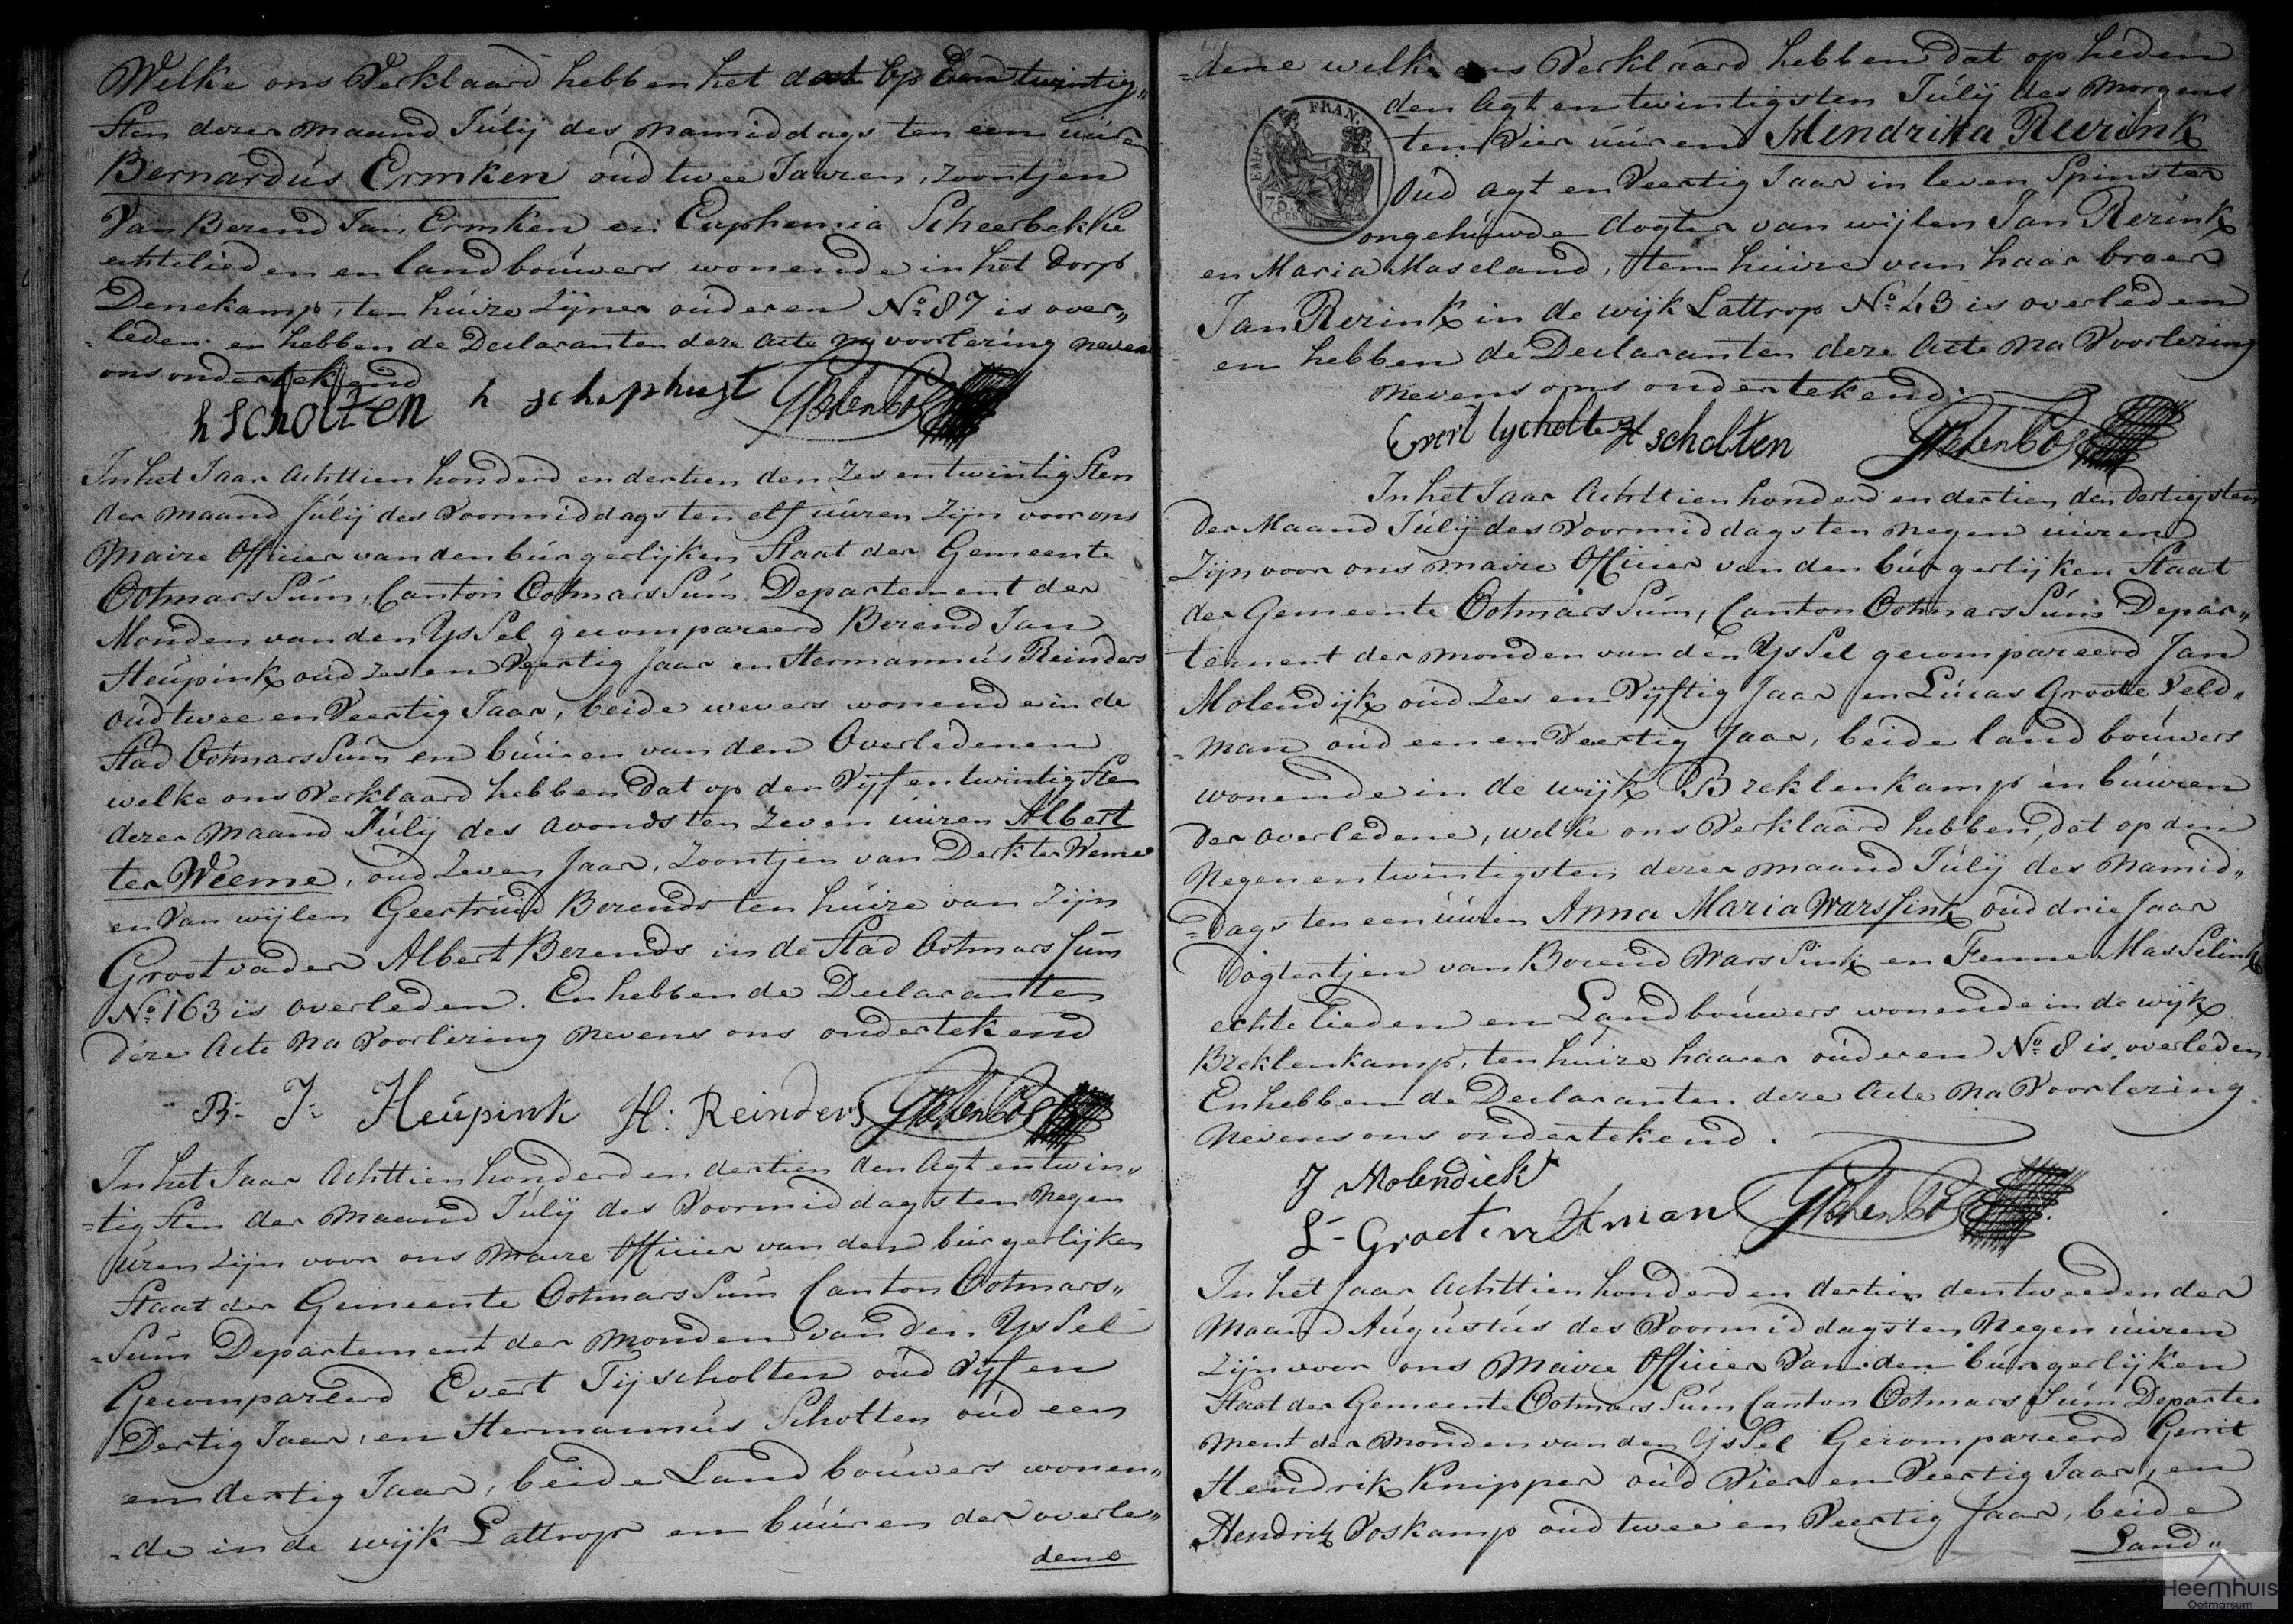 Welke ons Verklaard hebben het dat op Een twintig„
Sten dezer maand Júlij des namiddags ten een uúren
Bernardús Ermken oúd twee Jaaren, zoontjen
Van Berend Jan Ermken en Euphemia Scheerbekke
echtelieden en landboúwers wonende in het dorp
Denekamp, ten húize zijner oúderen No 87 is over„
leden en hebben de Declaranten deze Acte na voorlezing nevens
ons ondertekend
h Scholten h schephuyt
In het Jaar Achttien honderd en dertien den Zes en twintigsten
der maand Júlij des Voormiddags ten elf uúren Zijn voor ons
Maire Officier van den búrgerlijken Staat der Gemeente
OotmarsSúm, Canton OotmarsSúm Departement der
Monden van den YsSel gecompareerd Berend Jan
Heúpink oúd zes en Veertig Jaar en Hermannús Reinders
oúd twee en Veertig Jaar, beide wevers wonende in de
Stad OotmarsSúm en búúren van den Overledenen
welke ons Verklaard hebben dat op den Vyf en twintigsten
dezer Maand Júlij des avonds ten zeven uúren Albert
ter Weeme, oúd zeven Jaar, zoontjen van Derk ter Weme
en Van wijlen Geertrúid Berends ten húize van Zijn
Grootvader Albert Berends in de Stad OotmarsSúm
No 163 is overleden. En hebben de Declaranten
deze Acte Na Voorlezing nevens ons ondertekend
B: J: Heúpink H: Reinders
In het Jaar Achttien honderd en dertien den Agt en twin„
=tigSten der Maand Júlij des Voormiddags ten Negen
úren zijn voor ons Maire Officier van den búrgerlijken
Staat der Gemeente OotmarsSúm Canton Ootmars„
=Súm Departement der Monden van den YsSel
Gecompareerd Evert Tijscholten oúd Vijf en
Dertig Jaar, en Hermannús Scholten oúd een
en dertig Jaar, beide Landboúwers wonen„
=de in de wijk Lattrop en búúren der overle„
dene
=dene welke ons Verklaard hebben dat op heden
den Agt en twintigsten Júlij des Morgens
ten Vier uúren Hendrika Reerink
Oúd agt en Veertig Jaar in leven Spinster
ongehúwde dogter van wijlen Jan Rerink
en Maria Maseland, ten húize van haar broer
Jan Rerink in de wijk Lattrop No 43 is overleden
en hebben de Declaranten deze Acte Na Voorlezing
nevens ons ondertekend.
FRAN.
EMP.
75.
CES
Evert tyscholte H scholten
In het Jaar Achttien honderd en dertien den dertigsten
der Maand Júlij des Voormiddags ten negen uúren
Zijn voor ons maire Officier van den búrgerlijken Staat
der Gemeente OotmarsSúm, Canton OotmarsSúm Depar„
tement der monden van den YsSel gecompareerd Jan
Molendijk oúd Zes en Vyftig Jaar en Lúcas Groote Veld„
=man oúd een en Veertig Jaar, beide landboúwers
wonende in de wijk Breklenkamp en búúren
der overledene, welke ons Verklaard hebben, dat op den
Negen en twintigsten dezer maand Júlij des Namid„
=dags ten een uúren Anna Maria WarsSink oúd drie Jaar
dogtertjen van Berend WarsSink en Fenne MasSelink
echtelieden en Landboúwers wonende in de wijk
Breklenkamp, ten húize haarer oúderen No 8 is overleden.
En hebben de Declaranten deze Acte Na Voorlezing
Nevens ons ondertekend.
J Molendiek
In het Jaar Achttien honderd en dertien den tweeden der
Maand Aúgústús des Voormiddags ten Negen uúren
zijn voor ons Maire Officier Van den búrgerlijken
Staat der Gemeente OotmarsSúm Canton OotmarsSúm Departe„
ment der Monden van den YsSel Gecompareerd Gerrit
Hendrik Knipper oúd Vier en Veertig Jaar, en
Hendrik Voskamp oúd twee en Veertig Jaar, beide
Land„
Heemhuis
Ootmarsum